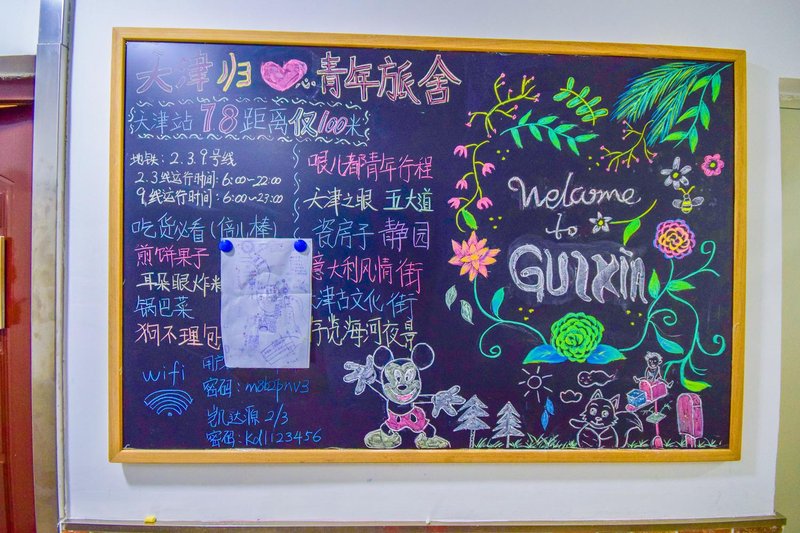 天津归 青年旅舍
天津站 78 距离仅100米
地铁:2.3.9号线
2.3线运行时间:6:00~22:00
9线运行时间:6:00~23:00
吃货必看(倍儿棒)
煎饼果子
耳朵眼炸
锅巴菜
狗不理包
wifi
密码:
凯达源 2/3
密码:kd1123456
哏儿都青年行程
天津之眼 五大道
瓷房子 静园
意大利风情街
津古文化街
海河夜景
Welcome
to
GUIXIN